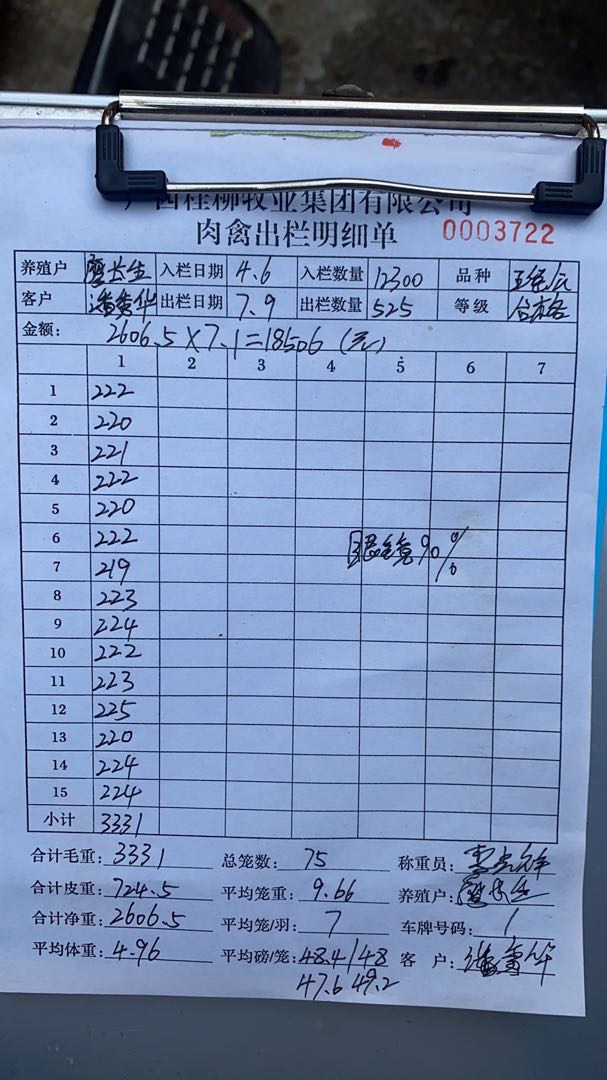 广西桂柳牧业集团有限公司
肉禽出栏明细单 0003722
养殖户 入栏日期 4.6 入栏数量 12300 品种
客户 潘秀华 出栏日期 7.9 出栏数量 525 等级 合格
金额: 2606.5×7.1=18506(元)
1 2 3 4 5 6 7
1 222
2 220
3 221
4 222
5 220
6 222 90%
7 219
8 223
9 224
10 222
11 223
12 225
13 220
14 224
15 224
小计 3331
合计毛重: 3331 总笼数: 75 称重员:
合计皮重: 724.5 平均笼重: 9.66 养殖户:
合计净重: 2606.5 平均笼/羽: 7 车牌号码: /
平均体重: 4.96 平均磅/笼: 48.4/48 客户:
47.6 49.2